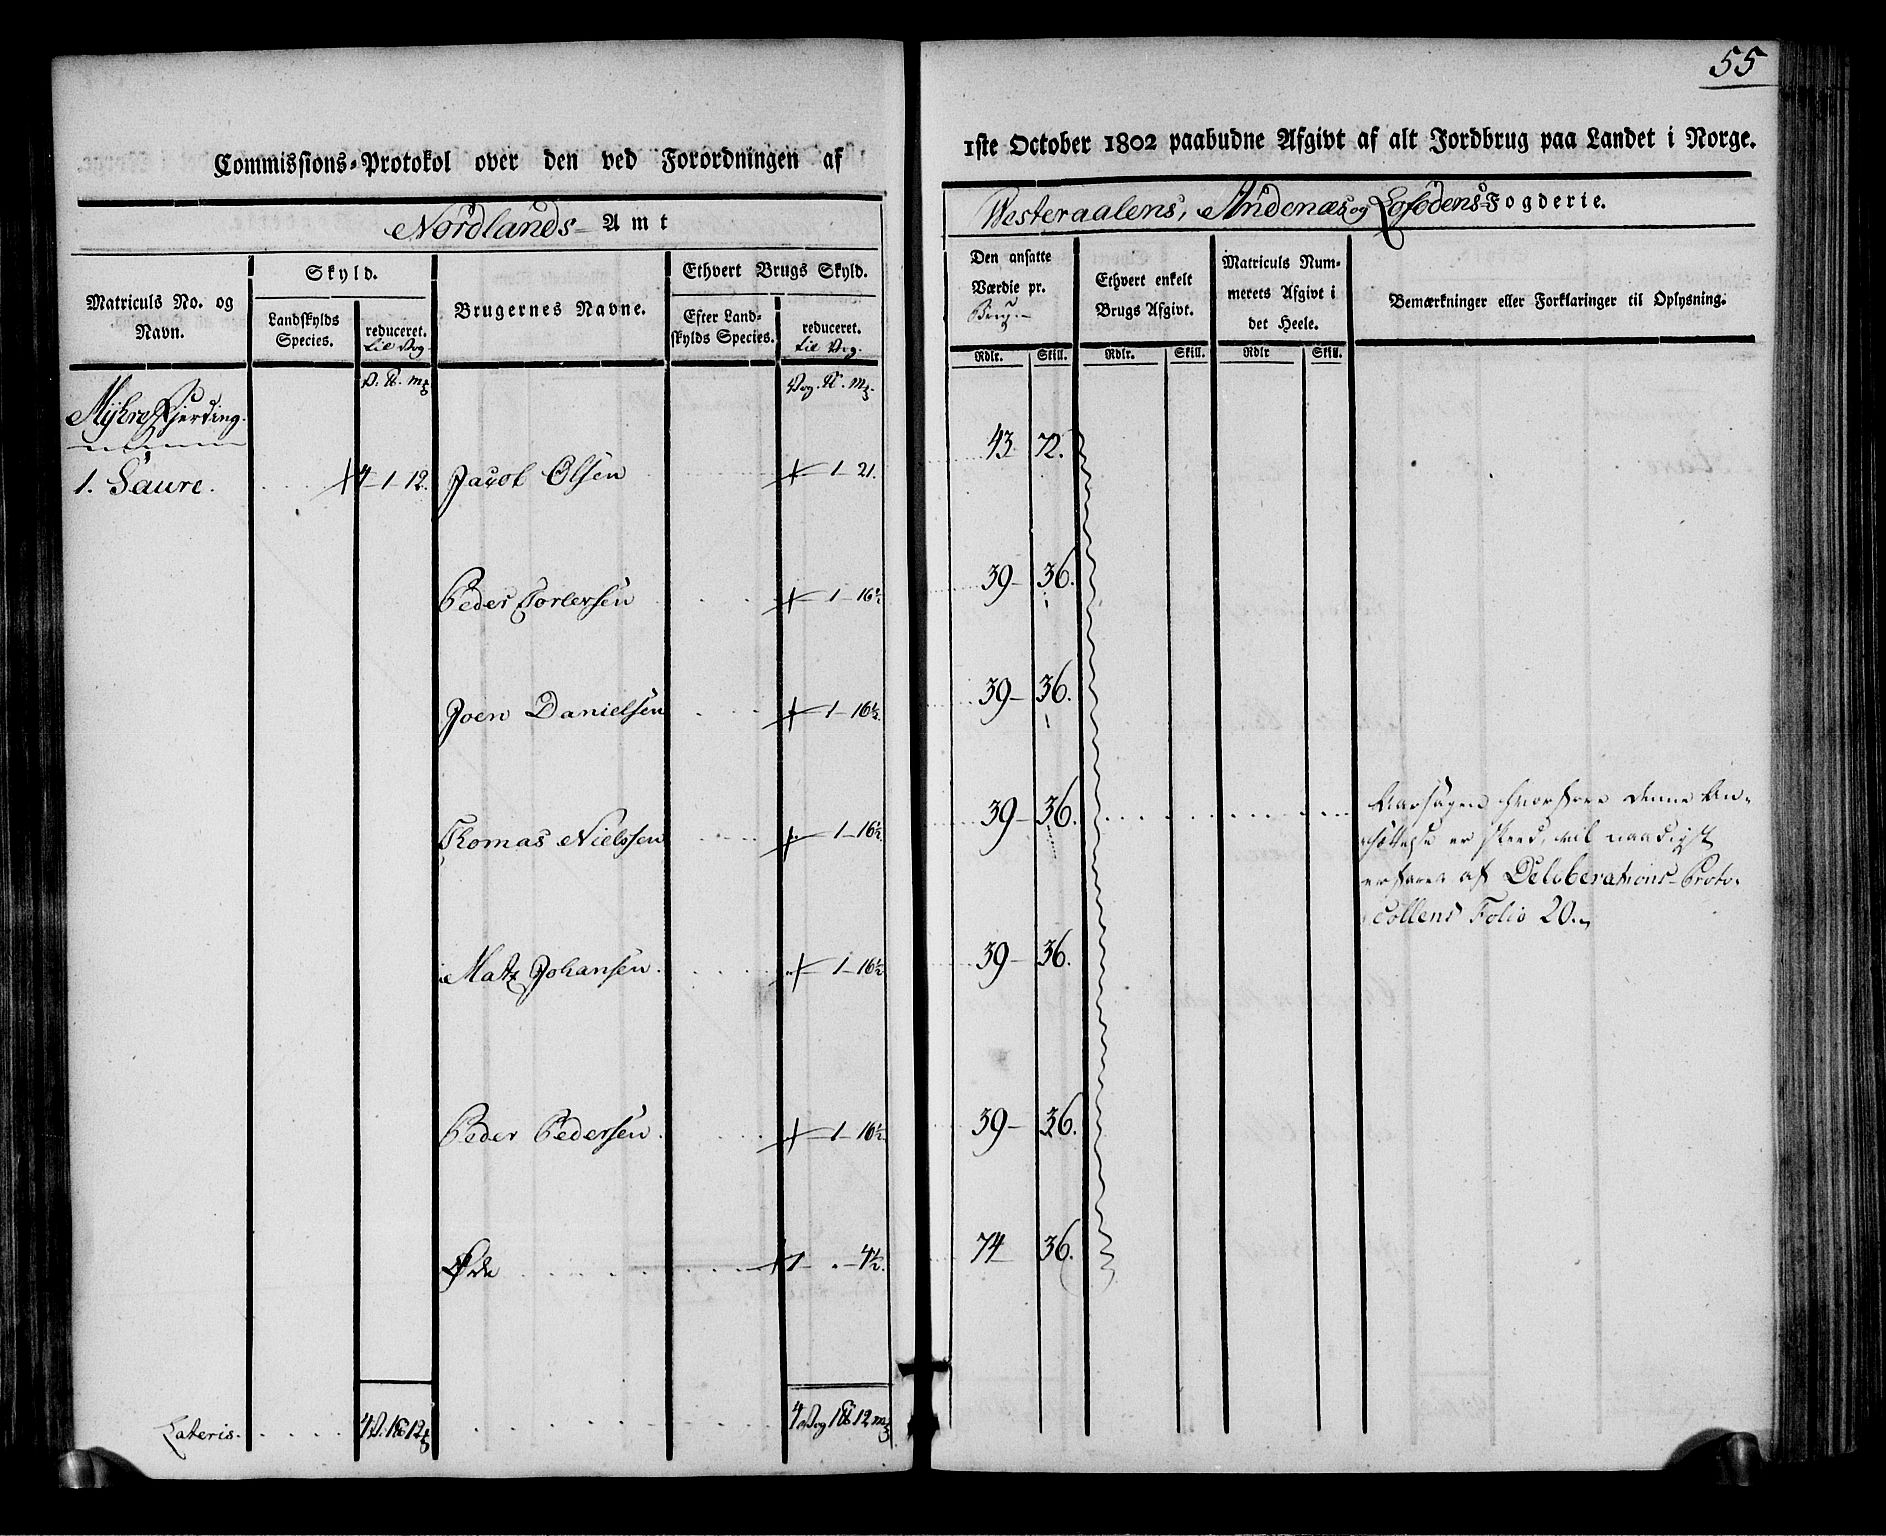 55
Commissions-Protokol over den ved Forordningen af
1ste October 1802 paabudne Afgivt af alt Jordbrug paa Landet i Norge.
Nordlands Amt
Westeraalens, Andenæs og Lofodens Fogderie.
Matriculs No. og Navn.
Skyld.
Landskylds Species.
reduceret. til Vog.
Brugernes Navne.
Ethvert Brugs Skyld.
Efter Landskylds Species.
reduceret. til Vog.
Den ansatte Værdie pr. Brug.
Ethvert enkelt Brugs Afgivt.
Matriculs Nummerets Afgivt i det Heele.
Bemærkninger eller Forklaringer til Oplysning.
Rdlr. Skill. Rdlr. Skill. Rdlr Skill.
Myhre Fjerding
1. Saure. 4 1 12. Jacob Olsen 1 21. 43 72.
Peder 1 16½ 39 36.
Joen Danielsen 1 16½ 39 36.
Thomas Nielssen 1 16½ 39 36.
Aarsagen hvorfore denne An-
sættelse er skeed, vil naadigst
erfares af Deliberations-Proto-
collens Folio 20.
Matz Johansen. 1 16½ 39 36.
Peder Pedersen. 1 16½ 39 36.
Øde 1 4½. 74 36.
Lateris. 4 V. 1 12 4 Vog 1 12